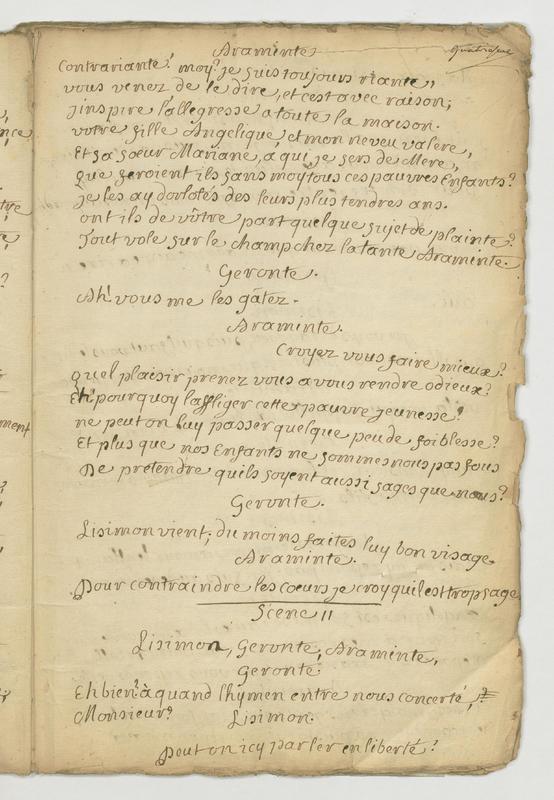 Araminte
contrariante! moy? je suis toujours riante,
vous venez de le dire, et c'est avec raison;
j'inspire l'allegresse a toute la maison.
votre fille Angelique, et mon neveu valere,
Et sa soeur Mariane, a qui je sers de Mere,
que feroient ils sans moy tous ces pauvres Enfants?
je les ay dorlotés des leurs plus tendres ans.
ont ils de vôtre part quelque sujet de plainte?
Tout vole sur le champ chez la tante Araminte.
Geronte.
Ah! vous me les gâtez.
Araminte.
Croyez vous faire mieux?
quel plaisir prenez vous a vous rendre odieux?
Eh! pourquoy l'affliger cette pauvre jeunesse?
ne peut on luy passer quelque peu de foiblesse?
Et plus que nos Enfants ne sommes nous pas fous
De pretendre quils soyent aussi sages que nous?
Geronte.
Lisimon vient; du moins faites luy bon visage
Araminte.
Pour contraindre les coeurs je croy quil est trop sage
Scene 11
Lisimon, Geronte, Araminte,
Geronte
Eh bien? à quand l'hymen entre nous concerté,
Monsieur? Lisimon.
Peut on icy parler en liberté?